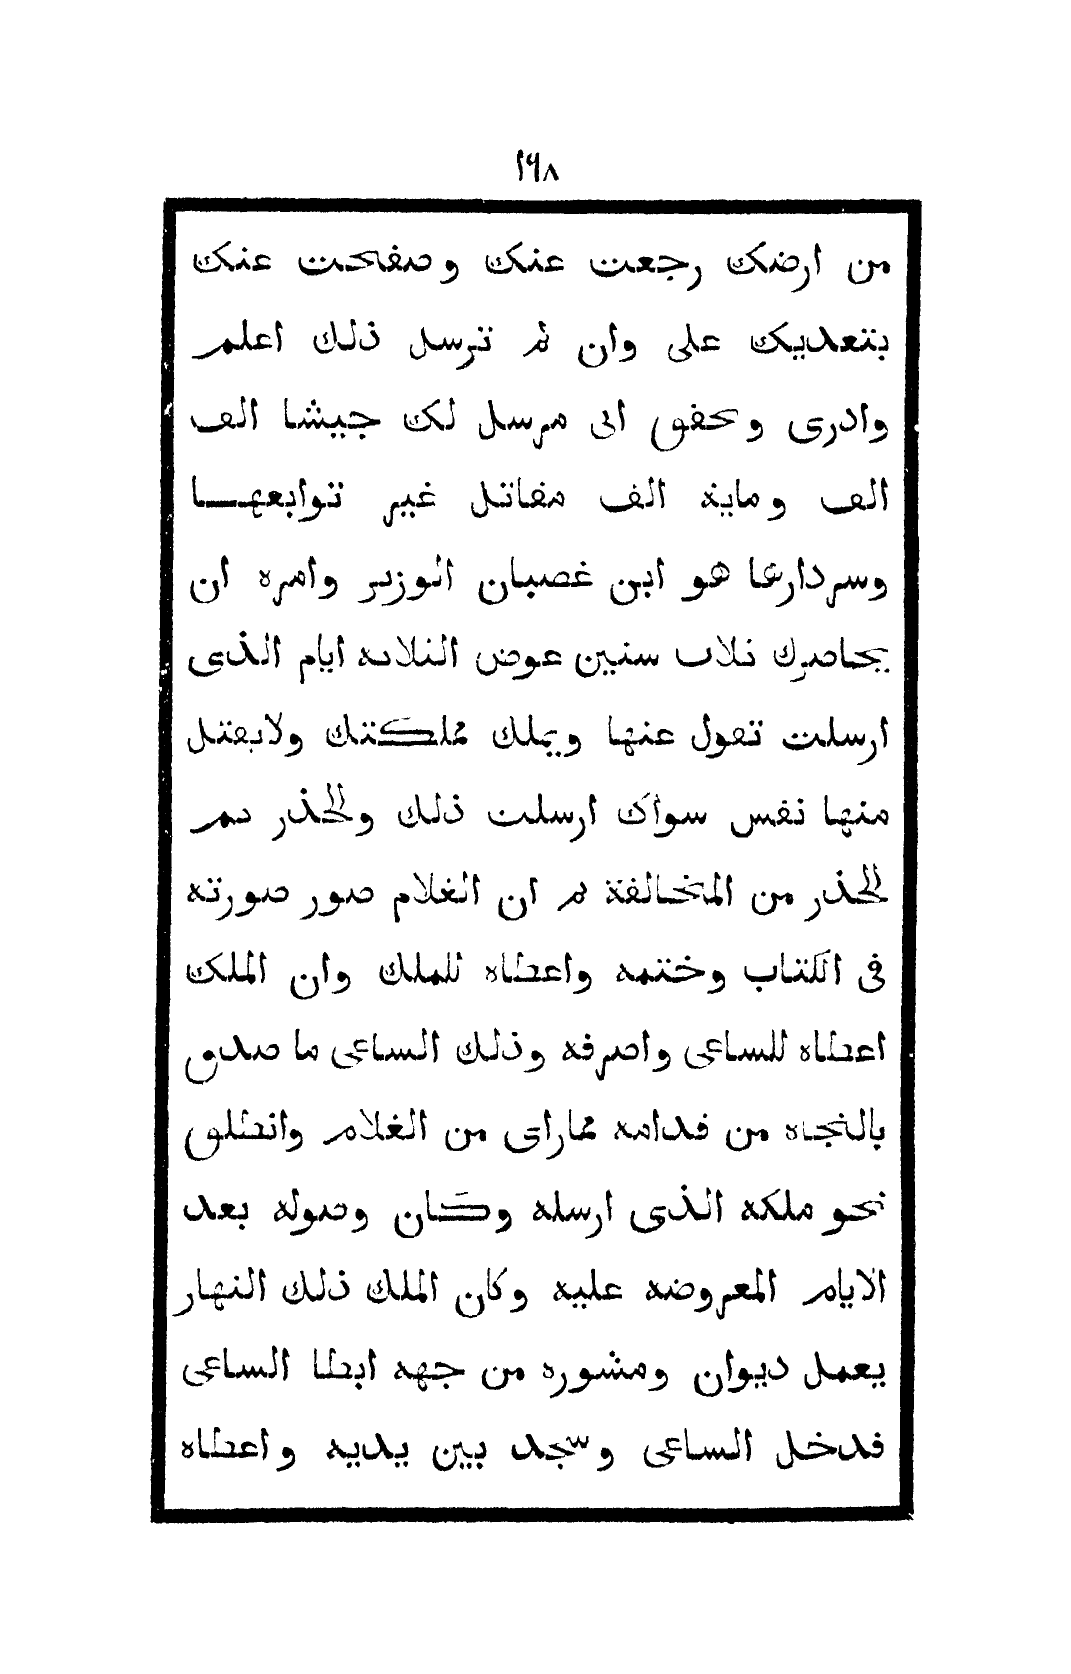 ١٩٨
من ارضك رجعت عنك وصفحت عنك
بتعديك على وان لم ترسل ذلك اعلم
وادرى وتحقق انى مرسل لك جيشا الف
الف وماية الف مقاتل غير توابعهـــا
وسردارها هو ابن غصبان الوزير وامره ان
يحاصرك ثلاث سنين عوض الثلاثه ايام الذى
ارسلت تقول عنها ويملك مملكتك ولايقتل
منها نفس سواك ارسلت ذلك والحذر ثمر
الحذر من المخالفة ثم ان الغلام صور صورته
فى الكتاب وختمه واعطاه للملك وان الملك
اعطاه للساعى واصرفه وذلك الساعى ما صدق
بالنجاه من قدامه مماراى من الغلام وانطلق
نحو ملكه الذى ارسله وكـان وصوله بعد
الايام المعروضه عليه وكان الملك ذلك النهار
يعمل ديوان ومشوره من جهه ابطا الساعى
فدخل الساعى وسجد بين يديه واعطاه